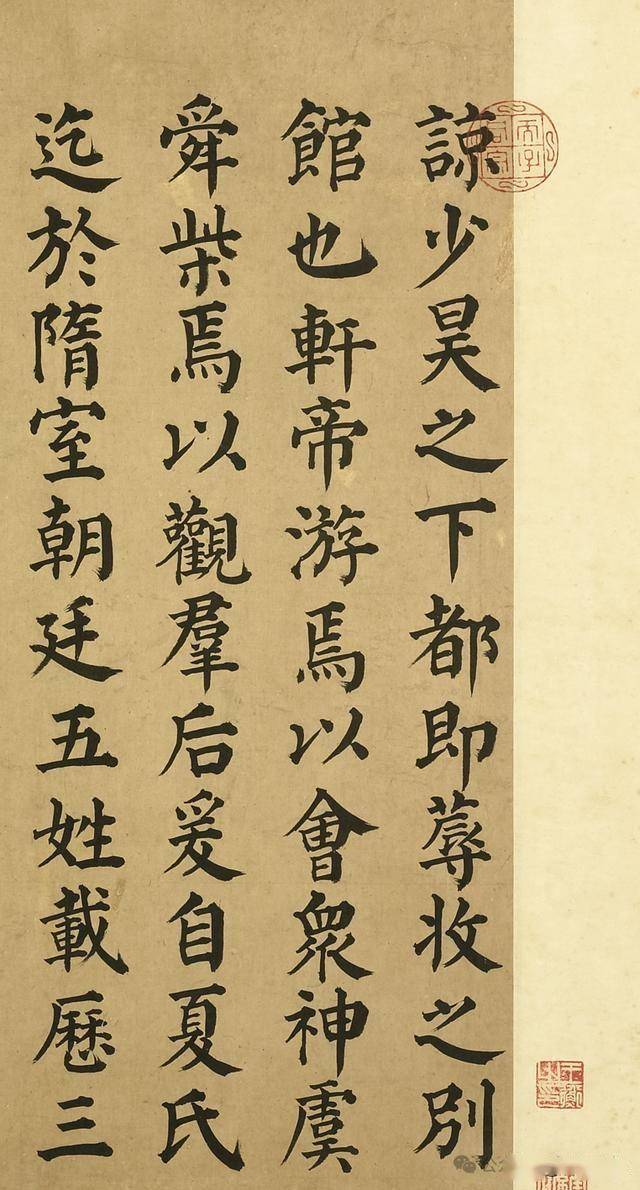 諒少昊之下都即蓐收之別
館也軒帝游焉以會衆神虞
舜柴焉以觀羣后爰自夏氏
迄於隋室朝廷五姓載歷三